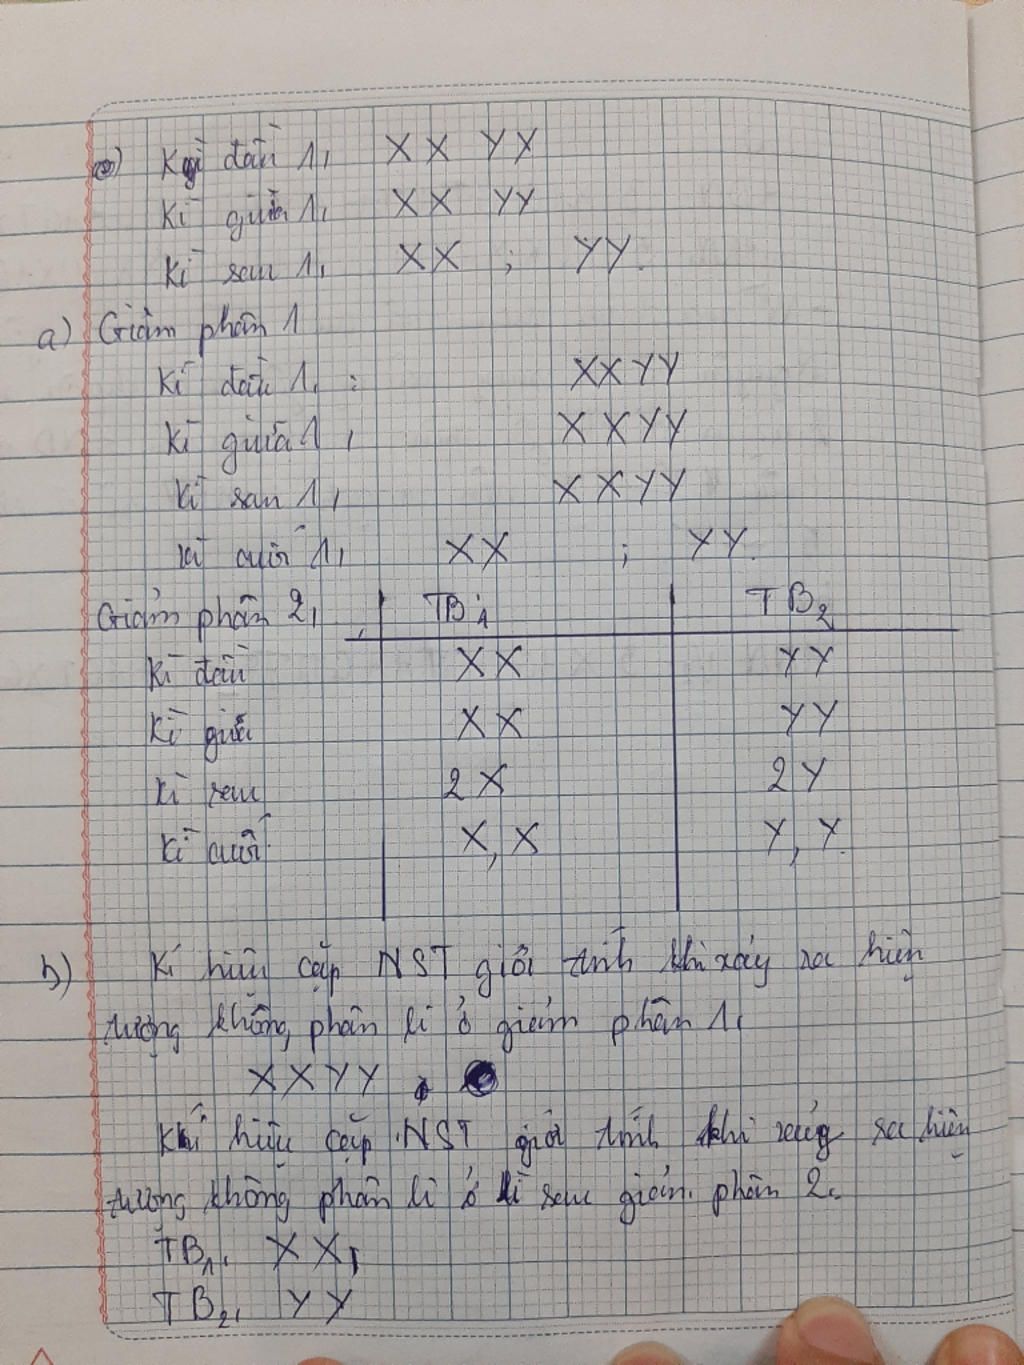 Kì đầu 1, XX YX
Kì giữa 1, XX YY
Kì sau 1, XX ; YY.
a) Giảm phân 1
Kì đầu 1, : XXYY
Kì giữa 1, XXYY
Kì sau 1, XXYY
Kì cuối 1, XX ; YY.
Giảm phân 2, TB1 TB2
Kì đầu XX YY
Kì giữa XX YY
Kì sau 2X 2Y
Kì cuối X, X Y, Y.
b) Kí hiệu cặp NST giới tính khi xảy ra hiện
tượng không phân li ở giảm phân 1,
XXYY
Kí hiệu cặp NST giới tính khi xảy ra hiện
tượng không phân li ở kì sau giảm phân 2.
TB1, XX,
TB2, YY